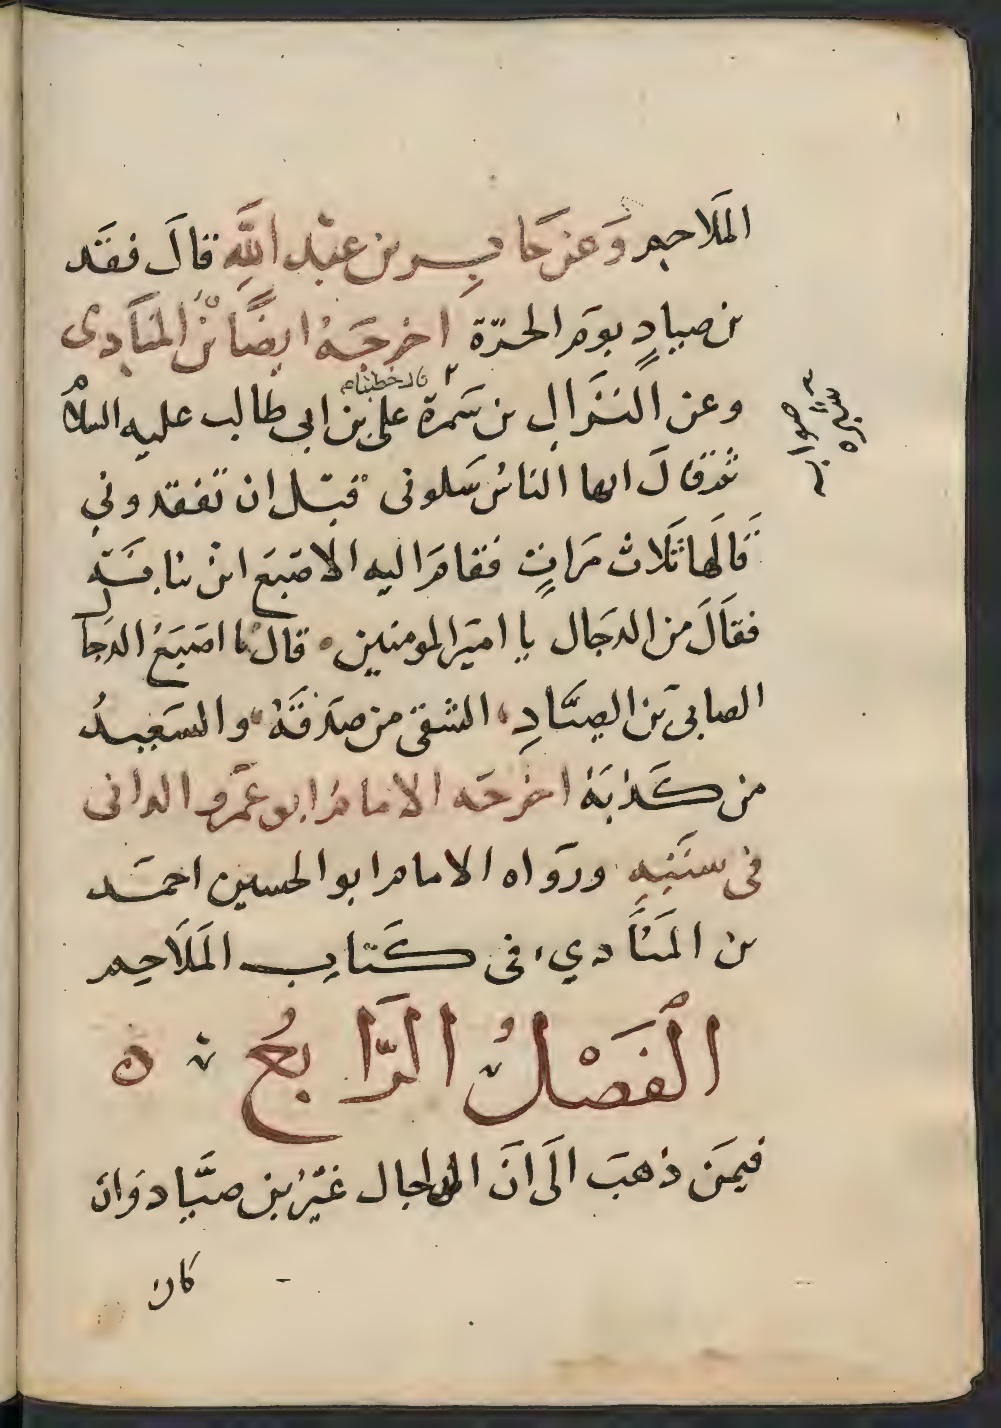 المَلَاحِم وَعَن جَابِر بن عبْد اللَّهِ قالَ فقَد
بن صيادٍ يوم الحرّة اخرجَهُ ايضًا بْن المنَادى
وعن النزَّال بن سَمرة قال خطبنام علي بن ابي طالب عليه السلام
ثم قالَ ايها الناسُ سَلونى قبل ان تفقدوني
قَالَها ثَلاث مَراتٍ فقام اليه الاصبَغ ابن نباتة
فقَالَ من الدجال يا اميَر المومنين قال يا اصبَغ الدجال
الصابى بن الصيَّادِ الشقى من صدقَهُ والسَعِيدُ
من كَذبَهُ اخرجَه الامام ابو عَمرو الدانى
فى سنَنِهِ ورَواه الامام ابو الحسين احمَد
بن المنَادي فى كَتاب المَلَاحِم
الفَصْلُ الرَّابعُ ه
فيمَن ذهبَ الَى انَ الدجال غَيْرُ بن صيَّاد وَانَ
كان
صوابه
سبره